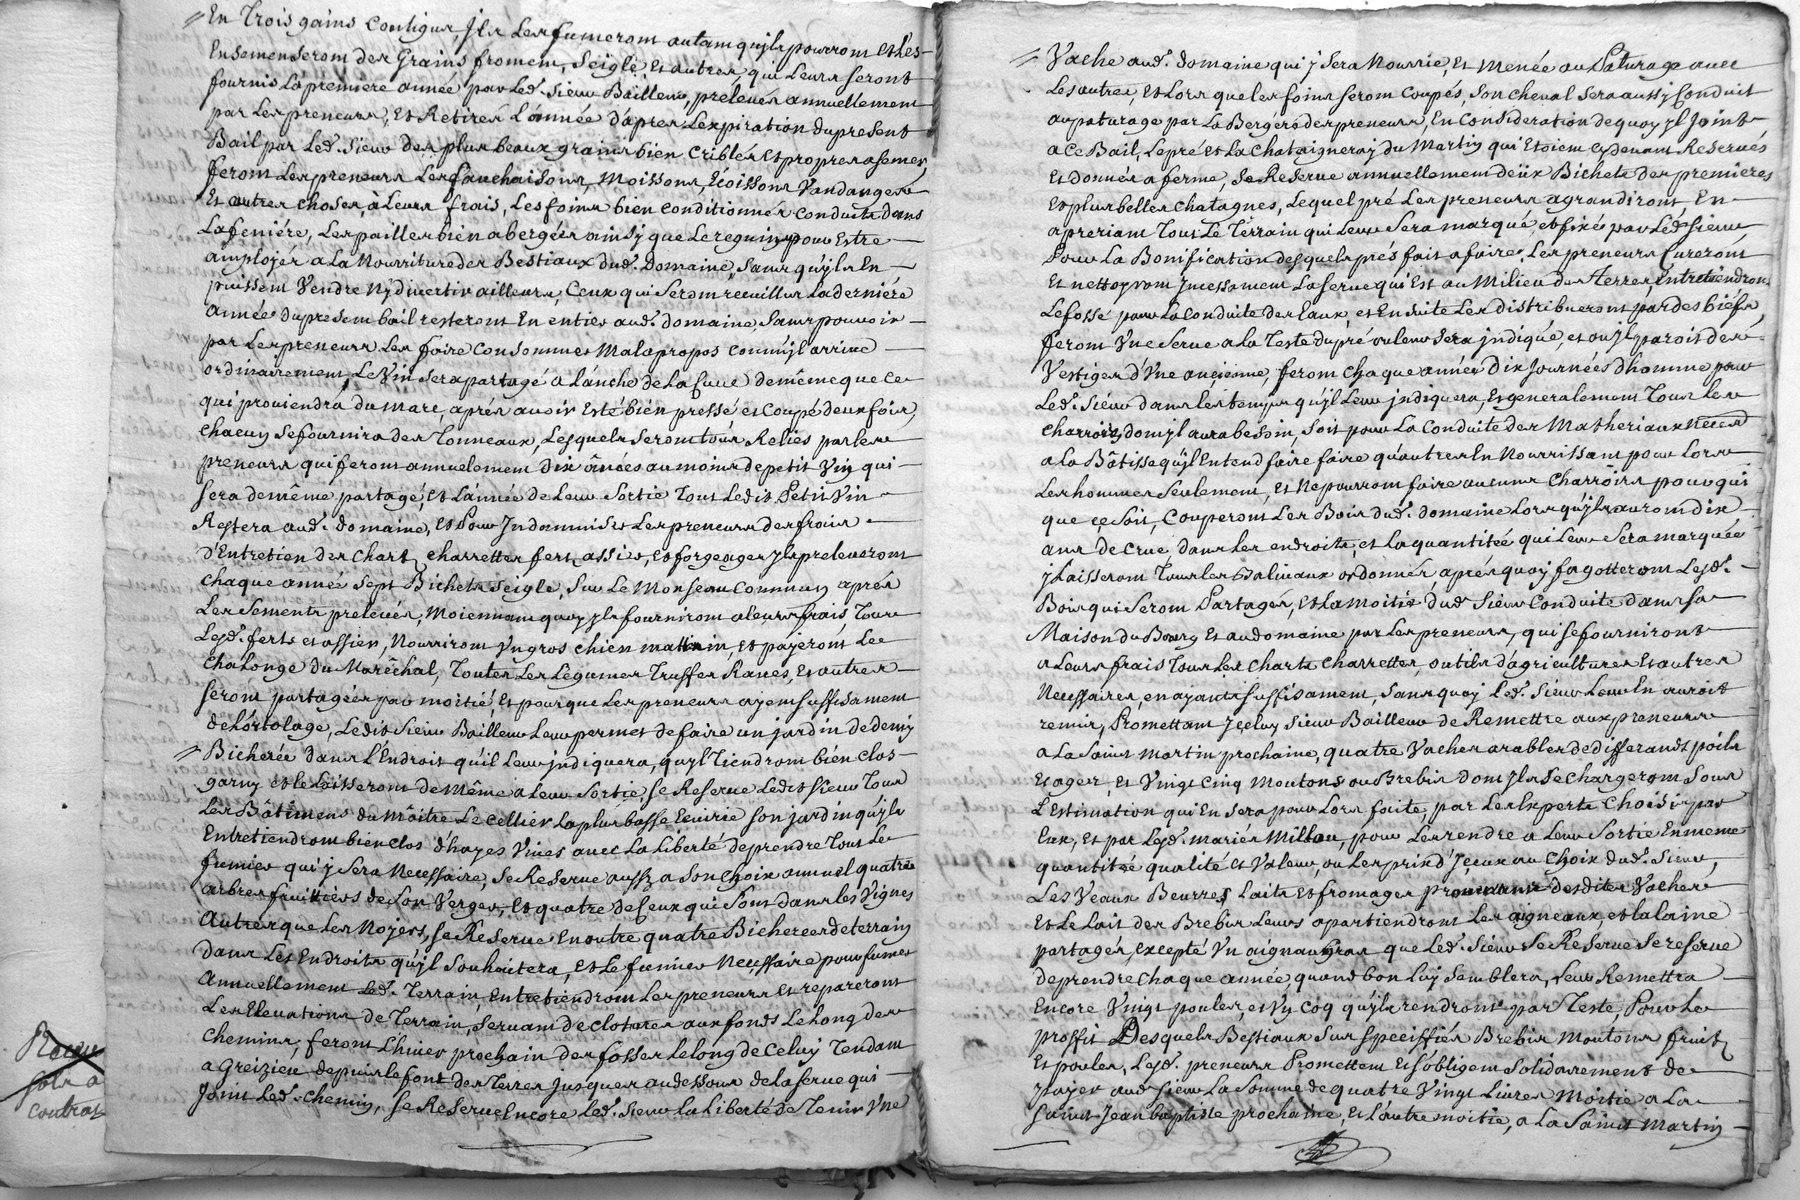 En Trois gains contigus, Ils Les fumeront autant quils pourront et Les
Ensemenseront des Grains froment, Seigle, Et autres, qui Leurs seront
fournis La premiere année par Led. Sieur Bailleur, prelevés annuellement
par Les preneurs, Et Retirés L'année d'apres L'expiration du present
Bail par Led. Sieur des plus beaux grains bien criblés Et propres a semer,
feront Les preneurs Les fauchaisons, Moissons, Ecoissons Vandanges
Et autres choses, à Leurs frais, Les foins bien conditionnés conduits dans
La feniére, Les pailles bien abergées ainsy que Le reguin pour Estre
amployés a La Nourriture des Bestiaux dud. Domaine, sans qu'yls En
puissent Vendre ny divertir ailleurs, Ceux qui Seront recuillis La derniére
année du present bail resteront En entier aud. domaine sans pouvoir
par Les preneurs Les faire consommer Mal a propos comm'yl arrive
ordinairement, Le Vin sera partagé a L'anche de La cuve de même que ce
qui proviendra du marc, aprés avoir Esté bién pressé et Coupé deux fois,
chacun se fournira des Tonneaux, Lesquels seront tous Reliés par Les
preneurs qui feront annuelement Dix ânées au moins de petit Vin qui
sera de même partagé, Et L'année de Leur Sortie Tout Ledit Petit Vin
Restera aud. domaine, Et Pour Indamniser Les preneurs des frais
d'Entretien des Charts, charrettes fers, assies, Et forgeages Ils preleveront
chaque année sept Bichets seigle, Sur Le Monseau Commun aprés
Les sements prelevés, Moiennant quoy yls fourniront a leurs frais Tous
Lesd. ferts et assies, Nourriront Un gros chien mattin, Et payeront Le
chalonge du Maréchal, Toutes Les Légumes Truffes Raves, Et autres
seront partagées par moitié, Et pour que Les preneurs ayent suffisament
de L'ortolage, Ledit Sieur Bailleur Leur permet de faire un jardin de demy
Bicherée dans L'Endroit qu'il Leur indiquera, qu'yl Tiendront bién clos
garny et le Laisseront de Même a Leur Sortie, se Reserve Ledit Sieur Tous
Les Bâtimens du Maître Le cellier La plus basse Ecuirie son jardin qu'yls
Entretiendront bien clos d'hayes Vives avec La Liberté de prendre Tout Le
fumier qui y Sera Necessaire, Se Reserve aussy a Son Choix annuel quatre
arbres fruittiérs de Son Verger, Et quatre de Ceux qui Sont dans les Vignes
Autres que Les Noyers, se Reserve En outre quatre Bicherées de terrain
Dans Les Endroits qu'yl Souhaitera, Et Le fumier Necessaire pour fumer
Annuellement Led. Terrain, Entretiéndront Les preneurs Et repareront
Les Elevations de Terrain, Servant de clotures aux fonds Le Long des
chemins, feront L'hiver prochain des fosses Le long de Celuy Tendant
a Greizieu depuis le font des Terres Jusques au dessous de La Serve qui
Joint Led. chemin, se Reserve Encore Led. Sieur La Liberté de Tenir Une
sols a
contrat
Vache aud. domaine qui y Sera Nourrie, Et Menée au Paturage avec
Les autres, Et Lors que Les foins seront Coupés, Son cheval Sera aussy Conduit
au paturage par La Bergére des preneurs, En Consideration de quoy yl Joint
a Ce Bail, Le pré Et La Chataigneray du Martin qui Etoient cy devant Reservés
Et donnés a ferme, se Reserve annuellement deux Bichets des premiéres
Et plus belles chatagnes, Lequel pré Les preneurs agrandiront En
apreriant Tout Le Terrain qui Leur Sera marqué, et fixé par Led. Sieur
Pour La Bonification desquels prés fait a faire, Les preneurs Cureront
Et nettoyront Incessament La Serve qui Est au Milieu des Terres, Entretiéndront
Le fossé pour La Conduite des Eaux, et En suite Les distribueront par des biéfs
feront Une Serve a La Teste du pré ou leur sera indiqué, et ou yl paroit des
Vestiges d'Une anciénne, feront Chaque année Dix Journées d'homme pour
Led. Siéur dans Les temps qu'yl Leur indiquera, Et generalement Tous Les
charroirs dont yl aura besoin, Soit pour La Conduite des Matheriaux Necess.
a La Bâtisse qu'yl Entend faire faire qu'autres En Nourrissant pour Lors
Les hommes Seulement, Et Ne pourront faire aucuns Charroirs pour qui
que ce Soit, Couperont Les Bois dud. domaine Lors qu'yls auront Dix
ans de crue, dans Les endroits, et La quantitée qui Leur Sera marquée
y Laisseront Tous Les Baliveaux ordonnés, aprés quoy fagotteront Lesd.
Bois qui Seront Partagés, Et La moitié dud. Siéur Conduite dans Sa
Maison du Bourg Et au domaine par Les preneurs, qui se fourniront
a Leurs frais Tous Les Charts Charrettes, outils d'agricultures Et autres
Necessaires, en ayants suffisament, sans quoy Led. Siéur Leur En auroit
remis, Promettant Iceluy Sieur Bailleur de Remettre aux preneurs
a La Saint Martin prochaine, quatre Vaches arables de differants poils
Et ages, Et Vingt Cinq Moutons ou Brebis dont yls Se Chargeront Sous
L'Estimation qui En Sera pour Lors faite, par Les Experts Choisis par
Eux, Et par Lesd. mariés Millou, pour Les rendre a Leur Sortie En meme
quantitée qualité Et Valeur, ou Les prix d'Iceux au Choix dud. Sieur,
Les Veaux Beurres Laits Et fromages provenants desdites Vaches
Et Le Lait des Brebis Leurs apartiendront Les aigneaux, et La laine
partagés, Excepté Un aigneau gras que Led. Siéur Se Reserve Se reserve
de prendre Chaque année, quand bon Luy Semblera, Leur Remettra
Encore Vingt poules, et Un Coq qu'yls rendront par Teste, Pour Le
proffit Desquels Bestiaux Sus speciffiés Brebis Moutons fruits
Et poules, Lesd. preneurs Promettent Et S'obligent Solidairement de
Payer aud. Sieur La Somme de quatre Vingt Livres Moitié a La
Saint Jean baptiste prochaine, Et L'autre moitié, a La Saint Martin